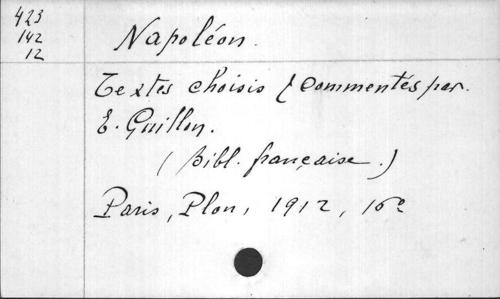 423
142
12
Napoléon.
Textes choisis & commentés par.
E. Guillon.
(Bibl. française.)
Paris, Plon, 1912, 16°